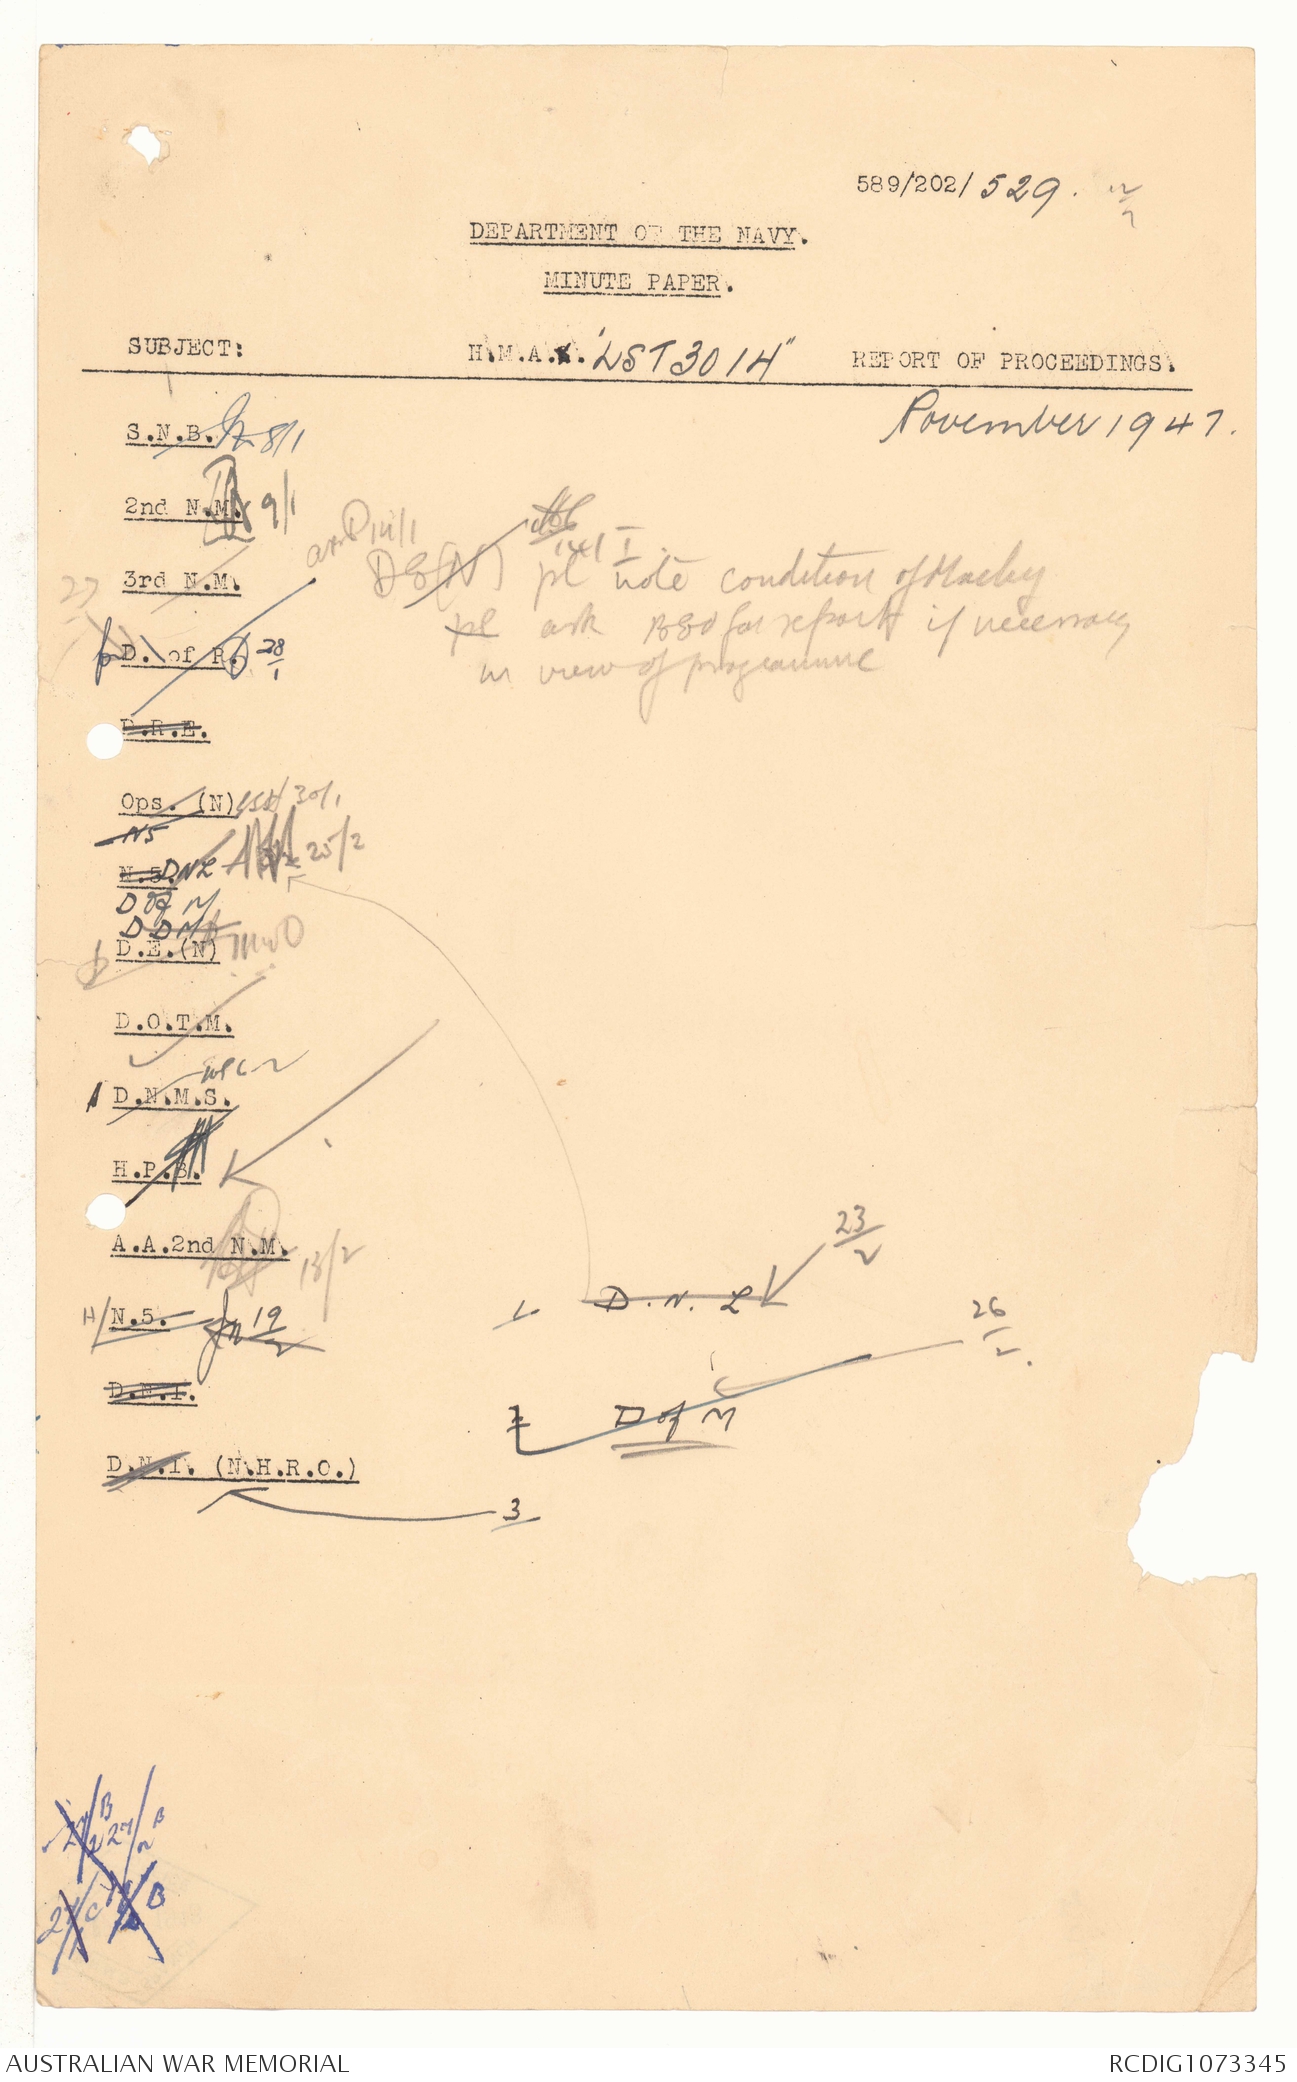 589/202/529.
DEPARTMENT OF THE NAVY.
MINUTE PAPER.
SUBJECT: H.M.A.S. "LST3014" REPORT OF PROCEEDINGS.
November 1947.
S.N.B. 8/1
2nd N.M. 9/1
14/1
3rd N.M. DE(N) pl note condition of Machy
27
pl ask for report if necessary
D. of R. 28/1
in view of programme
D.R.E.
Ops. (N) 30/1
N5
N.5. DNL 25/2
D of M
DDM
D.E.(N)
D.O.T.M.
D.N.M.S.
H.P.B.
A.A.2nd N.M. 13/2
23/2
1 D.N.L
H/N.5. 19/2
26/2.
D.N.I.
2 D of M
D.N.I. (N.H.R.O.)
3
27/2 B 27/2 B
B
AUSTRALIAN WAR MEMORIAL RCDIG1073345